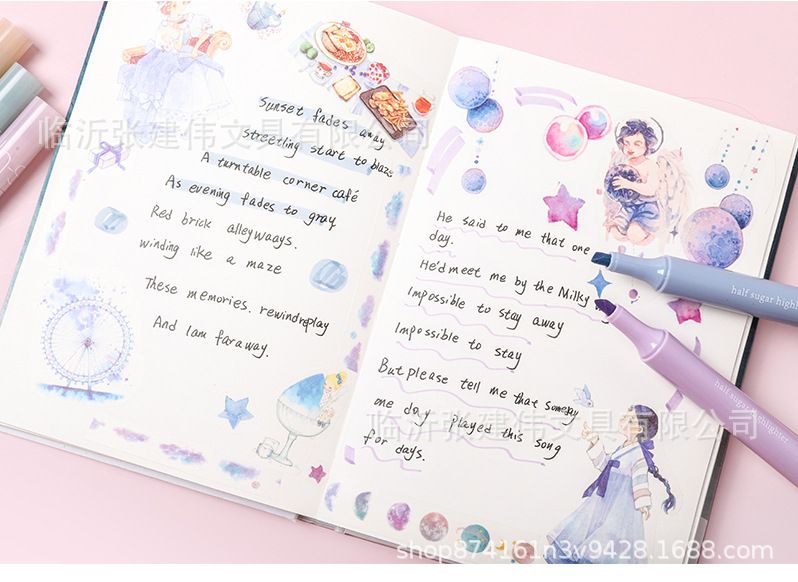 Sunset fades away
streetling start to blaze
A turntable corner café
As evening fades to gray
Red brick alleywaays.
winding like a maze
These memories. rewindreplay
And Iam faraway.
He said to me that one
day.
He'd meet me by the Milky
Impossible to stay away
Impossible to stay
But please tell me that someday
one day played this song
for days.
half sugar highli
half sugar highlighter
临沂张建伟文具有限公司
临沂张建伟文具有限公司
shop874161n3v9428.1688.com